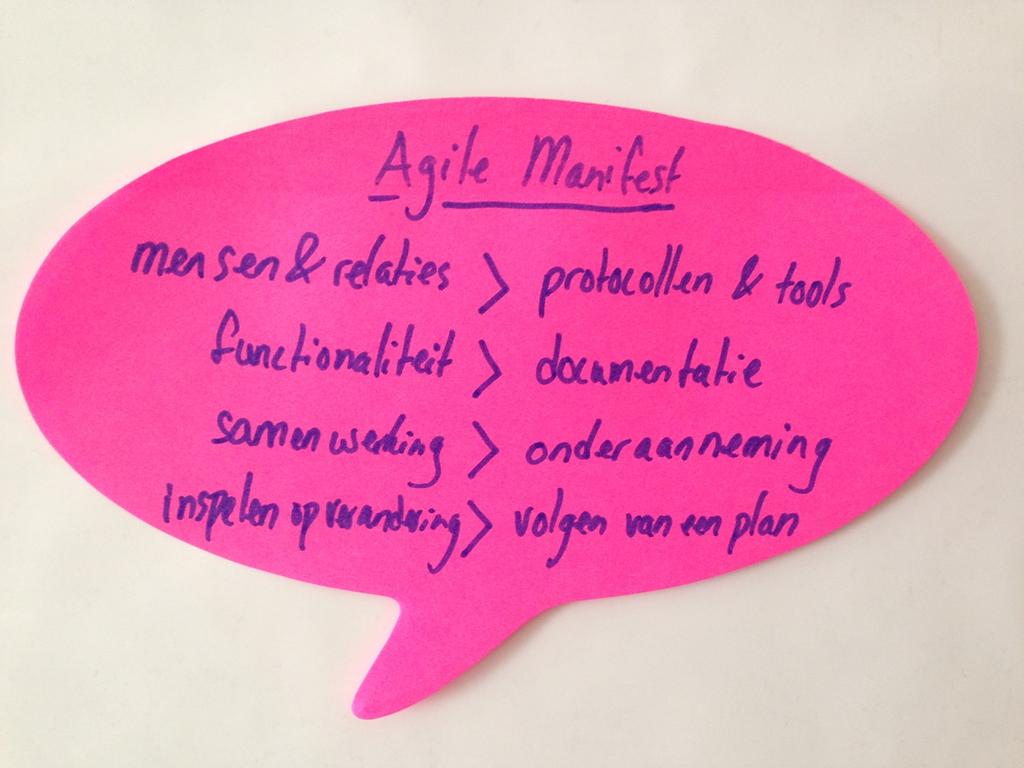 Agile Manifest
mensen & relaties > protocollen & tools
functionaliteit > documentatie
samenwerking > onderaanneming
inspelen op verandering > volgen van een plan